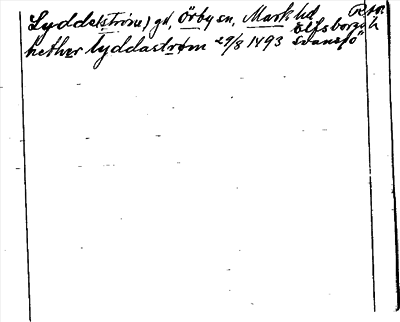 Lydde(ström) gd, Örby sn, Mark hd
Elfsborgs
nether lyddaström 29/8 1493 Svansjö